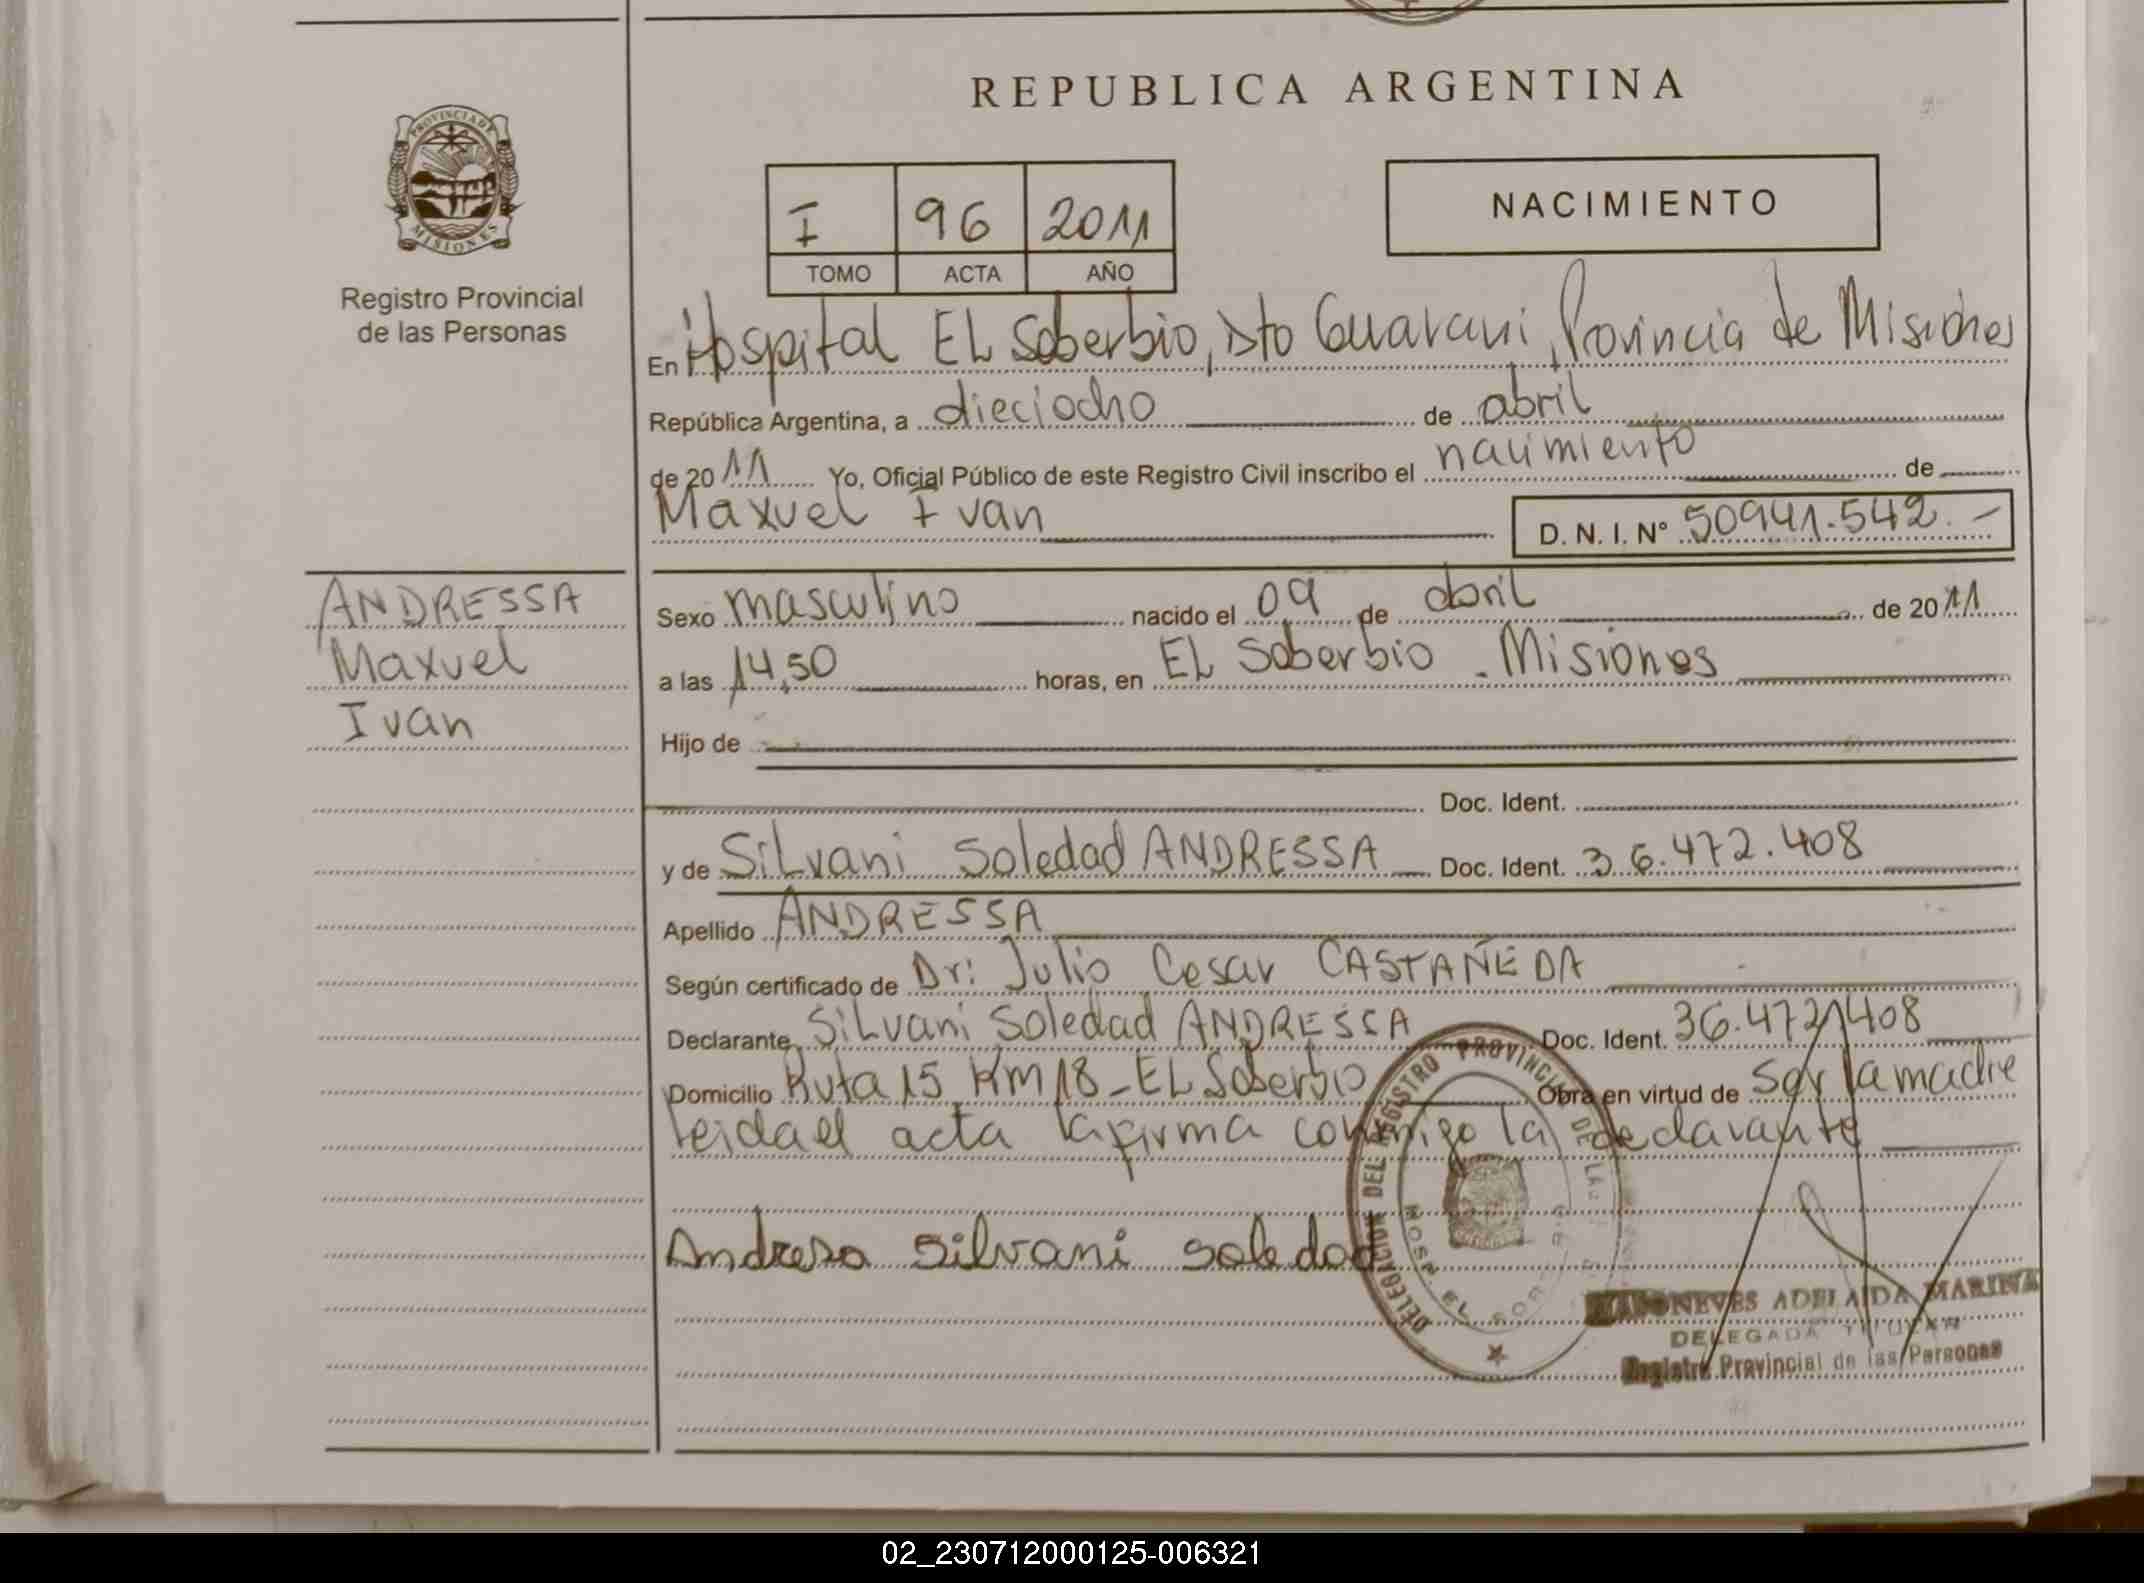 REPUBLICA ARGENTINA
PROVINCIA DE
MISIONES
Registro Provincial
de las Personas
I 96 2011
TOMO ACTA AÑO
NACIMIENTO
En Hospital EL Soberbio, Dto Guarani, Provincia de Misiones
República Argentina, a dieciocho de abril
de 2011 Yo, Oficial Público de este Registro Civil inscribo el nacimiento de
Maxuel Ivan D. N. I. Nº 50941.542.-
ANDRESSA
Maxuel
Ivan
Sexo masculino nacido el 09 de abril de 2011
a las 14,50 horas, en EL Soberbio - Misiones
Hijo de
Doc. Ident.
y de Silvani Soledad ANDRESSA Doc. Ident. 36.472.408
Apellido ANDRESSA
Según certificado de Dr: Julio Cesar CASTAÑEDA
Declarante Silvani Soledad ANDRESSA Doc. Ident. 36.472.408
Domicilio Ruta 15 Km 18 - EL Soberbio Obra en virtud de ser la madre
leida el acta la firma conmigo la declarante
Andresa Silvani Soledad
DELEGACION DEL REGISTRO PROVINCIAL DE LAS
HOSP. EL SOB
NEVES ADELAIDA MARINA
DELEGADA TITULAR
Registro Provincial de las Personas
02_230712000125-006321